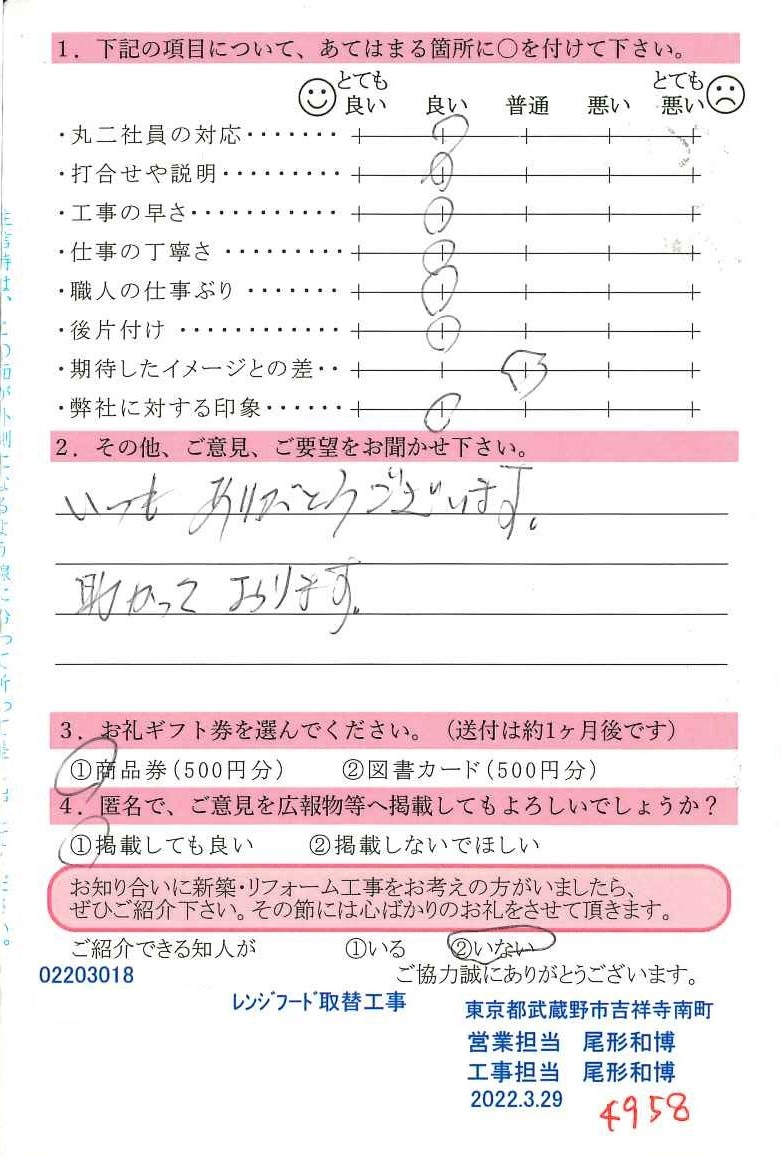 1. 下記の項目について、あてはまる箇所に○を付けて下さい。
とても良い 良い 普通 悪い とても悪い
・丸二社員の対応・・・・・・・
・打合せや説明・・・・・・・・・
・工事の早さ・・・・・・・・・・・
・仕事の丁寧さ ・・・・・・・・・
・職人の仕事ぶり ・・・・・・・
・後片付け ・・・・・・・・・・・・
・期待したイメージとの差・・
・弊社に対する印象・・・・・・
2. その他、ご意見、ご要望をお聞かせ下さい。
いつも ありがとうございます。
助かって おります。
3. お礼ギフト券を選んでください。(送付は約1ヶ月後です)
①商品券(500円分) ②図書カード(500円分)
4. 匿名で、ご意見を広報物等へ掲載してもよろしいでしょうか?
①掲載しても良い ②掲載しないでほしい
お知り合いに新築・リフォーム工事をお考えの方がいましたら、
ぜひご紹介下さい。その節には心ばかりのお礼をさせて頂きます。
ご紹介できる知人が ①いる ②いない
02203018 ご協力誠にありがとうございます。
レンジフード取替工事 東京都武蔵野市吉祥寺南町
営業担当 尾形和博
工事担当 尾形和博
2022.3.29
4958